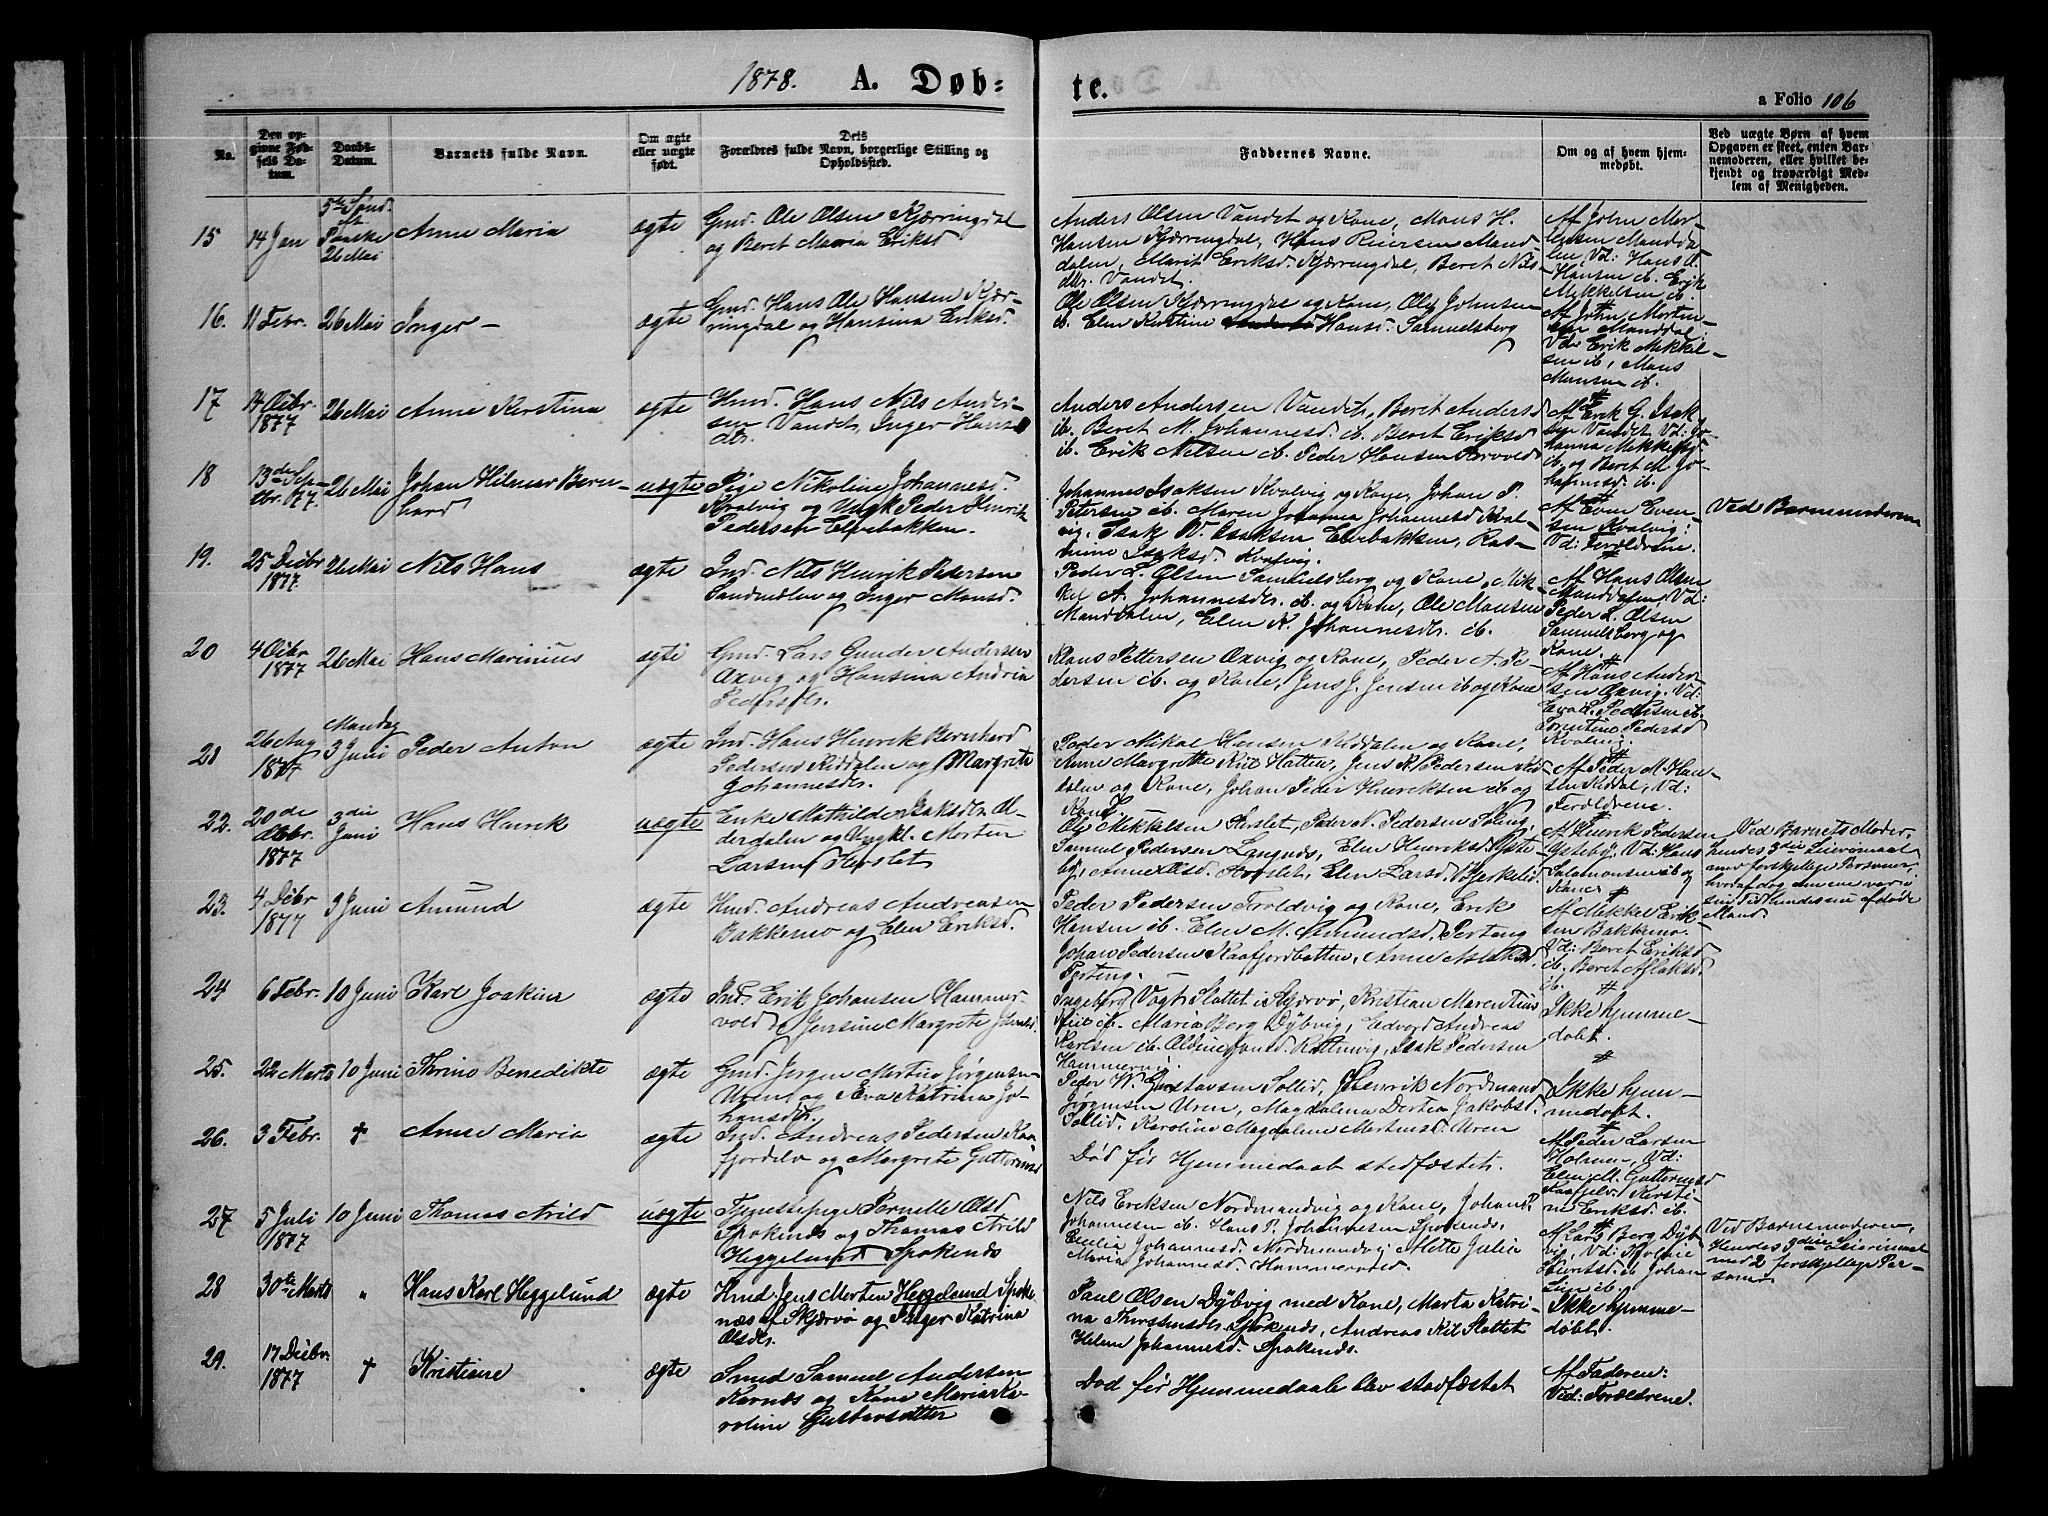 1878. A. Døb=
te.
a Folio 106
No.
Den op-
givne Fød-
sels Da-
tum.
Daabs-
Datum.
Barnets fulde Navn.
Om ægte
eller uægte
født.
Dets
Forældres fulde Navn, borgerlige Stilling og
Opholdssted.
Faddernes Navne.
Om og af hvem hjem-
medøbt.
Ved uægte Børn af hvem
Opgaven er skeet, enten Bar-
nemoderen, eller hvilket be-
kjendt og troværdigt Med-
lem af Menigheden.
15 14 Jan 5te Sønd.
eft
Paaske
26 Mai
Anne Maria
ægte
Gmd. Ole Olsen Kjærringdal
og Beret Maria Eriksd
Anders Olsen Vandet og Kone, Mons H.
Hansen Kjærringdal, Hans Riersen Mand
dalen, Marit Eriksd. Kjærringdal, Beret Nils-
dtr. Vandet.
Af John Mor-
tensen Mandda
len, Vd: Hans O.
Hansen ib. Erik
Mikkelsen ib.
16. 11 Febr. 26 Mai Inger -
ægte
Gmd. Hans Ole Hansen Kjær-
ringdal og Hansina Eriksd.
Ole Olsen Kjærringdal og Kone, Ole Johnsen
ib. Elen Kirstine Hansd. Samuelsberg
Af John Morten-
sen Manddal
Vd: Erik Mikkel-
sen ib, Mons
Monsen ib.
17 14 Octbr. 26 Mai
1877
Anne Kirstina
ægte
Hmd. Hans Nils Ander-
sen Vandet, Inger Hans
dtr.
Anders Andersen Vandet, Beret Andersd
ib. Beret M. Johannesd. ib. Beret Eriksd
ib. Erik Nilsen ib. Peder Hansen
Af Erik G. Isak
sen Vandet Vd: Jo-
hanna Mikkelsd.
ib. og Beret M. Jo-
hannesd. ib.
18 13de Sep-
tbr. 77. 26 Mai
Johan Hilmar Bern-
hard
uægte
Pige Nikoline Johannesd.
Kvalvig og Ungk Peder Henrik
Pedersen Elvebakken.
Johannes Isaksen Kvalvig og Kone, Johan P.
Petersen ib. Maren Johanna Johannesd Kval-
vig, Isak W. Isaksen Elvebakken, Ras-
mine Isaksd. Kvalvig.
Af Even Even-
sen Kvalvig:
Vd: Forældrene.
Ved Barnemoderen
19. 25 Decbr 26 Mai
1877.
Nils Hans
ægte
Ind. Nils Henrik Pedersen
Sandmælen og Inger Monsd.
Peder L. Olsen Samuelsberg og Kone, Mik-
kel A. Johannesdtr. ib. og Kone, Ole Monsen
Manddalen, Elen K. Johannesdtr. ib.
Af Hans Olsen
Manddalen, Vd:
Peder L. Olsen
Samuelsberg og
Kone.
20 4 Octbr 26 Mai
1877
Hans Marinius
ægte
Gmd. Lars Gunder Andersen
Oxvig og Hansina Andria
Pedersdtr.
Klaus Pettersen Oxvig og Kone, Peder A. Pe-
dersen ib. og Kone, Jens J. Jensen ib og Kone
Af Hans Ander
sen Oxvig. Vd:
Pedersen ib.
Pedersd
Kvalvig.
21 26 Aug Mandag
1877 3 Juni
Peder Anton
ægte
Ind. Hans Henrik Bernhard
Pedersen Kiddalen og Margrete
Johannesdtr.
Peder Mikal Hansen Kiddalen og Kone,
Anne Margrethe Kiil Hatten, Jens K. Pedersen Kid-
dalen og Kone, Johan Peder Henriksen ib og
Kone.
Af Peder M. Han-
sen Kiddal, Vd:
Forældrene.
22. 20de
Octbr.
1877
3die
Juni
Hans Henrik
uægte
Enke Mathilde Isaksdtr. Ol-
derdalen og Ungkl. Morten
Larsen Storslet
Ole Mikkelsen Storslet, Peder N. Pedersen
Samuel Pedersen Langnds, Elen Henriksd Yste-
by, Anne Olsd. Storslet, Elen Larsd. Bjerkelid.
Af Henrik Pedersen
Ysteby. Vd: Hans
Salamonsen ib og
Kone
Ved Barnets Moder,
hendes 3die Leiermaal
med forskjellige Personer,
hvoraf dog den ene var
Mand
23. 4 Decbr 3 Juni
1877
Amund
ægte
Hmd. Andreas Andreasen
Bakkemo og Elen Eriksd.
Peder Pedersen Troldvig og Kone, Erik
Hansen ib. Elen M. Amundsd. Perteng
Johan Pedersen Kaafjordbotten, Anne Aslaksd.
Perteng.
Af Mikkel Erik-
sen Bakkemo.
Vd: Beret Eriksd
ib. Beret Aslaksd.
ib.
24 6 Febr. 10 Juni
Karl Joakim
ægte
Ind. Erik Johansen Hammer-
vold og Jensine Margrete
Ingeborg Vogt Slottet i Skjærvø, Kristian Maren Tius
Kiil ib. Maria Berg Dybvig, Edvard Andreas
Karlsen ib. Aldine Jonsd. Rottenvig, Isak Pedersen
Hammervig.
Ikke hjemme-
døbt.
25. 22 Marts 10 Juni
Thrine Benedikte
ægte
Gmd. Jørgen Martin Jørgensen
Uren og Eva Katrina Jo-
hansdtr.
Peder W. Gustavsen Sollid, Henrik Nordmand
Jørgensen Uren, Magdalena Dertea Jakobsd.
Sollid. Karoline Magdalene Mortensd. Uren
Ikke hjem-
medøbt.
26. 3 Febr. †
Anne Maria
ægte
Ind. Andreas Pedersen Kaa-
fjordelv og Margrete Guttormsd
Død før Hjemmedaab stedfæstet.
Af Peder Larsen
Holmen, Vd:
Elen M. Guttormsd
Kaafjelv. Kirsti-
ne Eriksd. ib.
27 5 Juli 10 Juni
1877
Thomas Arild
uægte
Tjenestepige Pernelle Olsd
Spokenæs og Thomas Arild
Heggelund Spokenæs
Nils Eriksen Nordmandvig og Kone, Johan P.
Johannesen ib. Hans P. Johannesen Spokenæs,
Cecilia Johannesd. Nordmandvig Mette Julie
Maria Johannesd. Hammervold.
Af Lars Berg Dyb
vig, Vd:
ib. Johan
ib.
Ved Barnemoderen,
Hendes 3die Leiermaal
med 2 forskjellige Per-
soner
28 30te Marts "
Hans Karl Heggelund
ægte
Hmd. Jens Morten Heggelund Spoke
næs af Skjærvø og Inger Katrina
Olsdtr.
Paul Olsen Dybvig med Kone, Marta Katri-
na Thorstensdtr. Spokenæs, Andreas Kiil Slottet
Helene Johannesd. Spokenæs.
Ikke hjemme-
døbt.
29. 17 Decbr. †
1877
Kristiane
ægte
Smed Samuel Andersen
Karnæs og Kone Maria Ka-
roline Gustavsdatter
Død før Hjemmedaab blev stadfæstet
Af Faderen:
Vd: Forældrene.